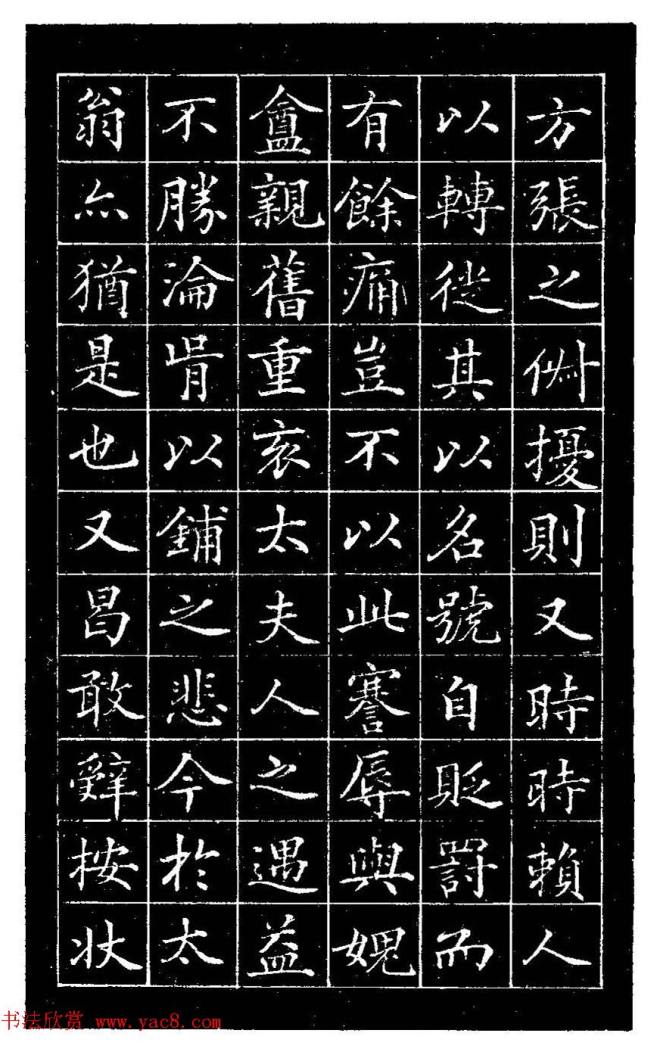 方張之擾則又時時賴人
以轉徙其以名號自貶罰而
有餘痛豈不以此謇辱與媿
盦親舊重哀太夫人之遇益
不勝淪胥以鋪之悲今於太
翁亦猶是也又曷敢辭按狀
书法欣赏 www.yac8.com